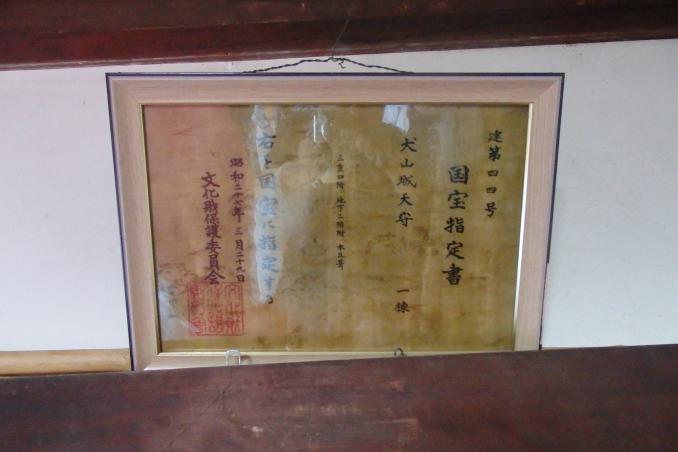 建第四四号
国宝指定書
犬山城天守 一棟
三重四階 地下二階附 本瓦葺
右を国宝に指定する
昭和二十七年三月二十九日
文化財保護委員会